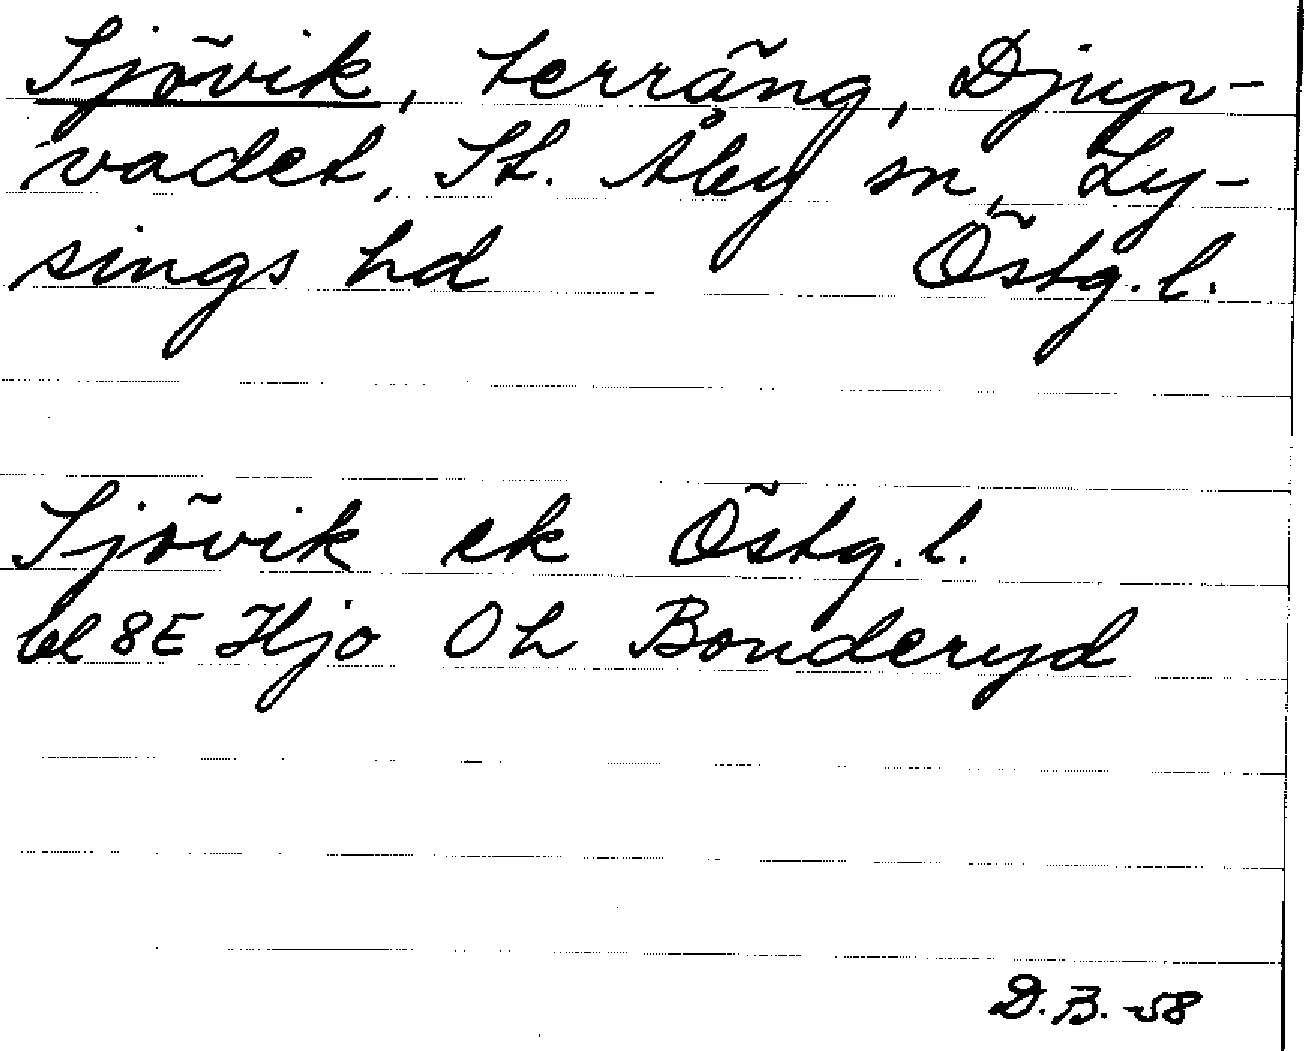 Sjövik, terräng, Djup-
vadet, St. Åby sn, Ly-
sings hd Östg. l.
Sjövik ek Östg. l.
bl 8E Hjo Oh Bonderyd
D. B. -58